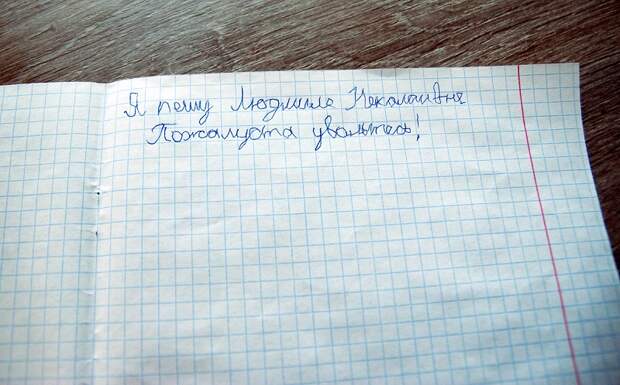 Я пешу Людмиле Неколаивне
Пожалуста увольтесь!